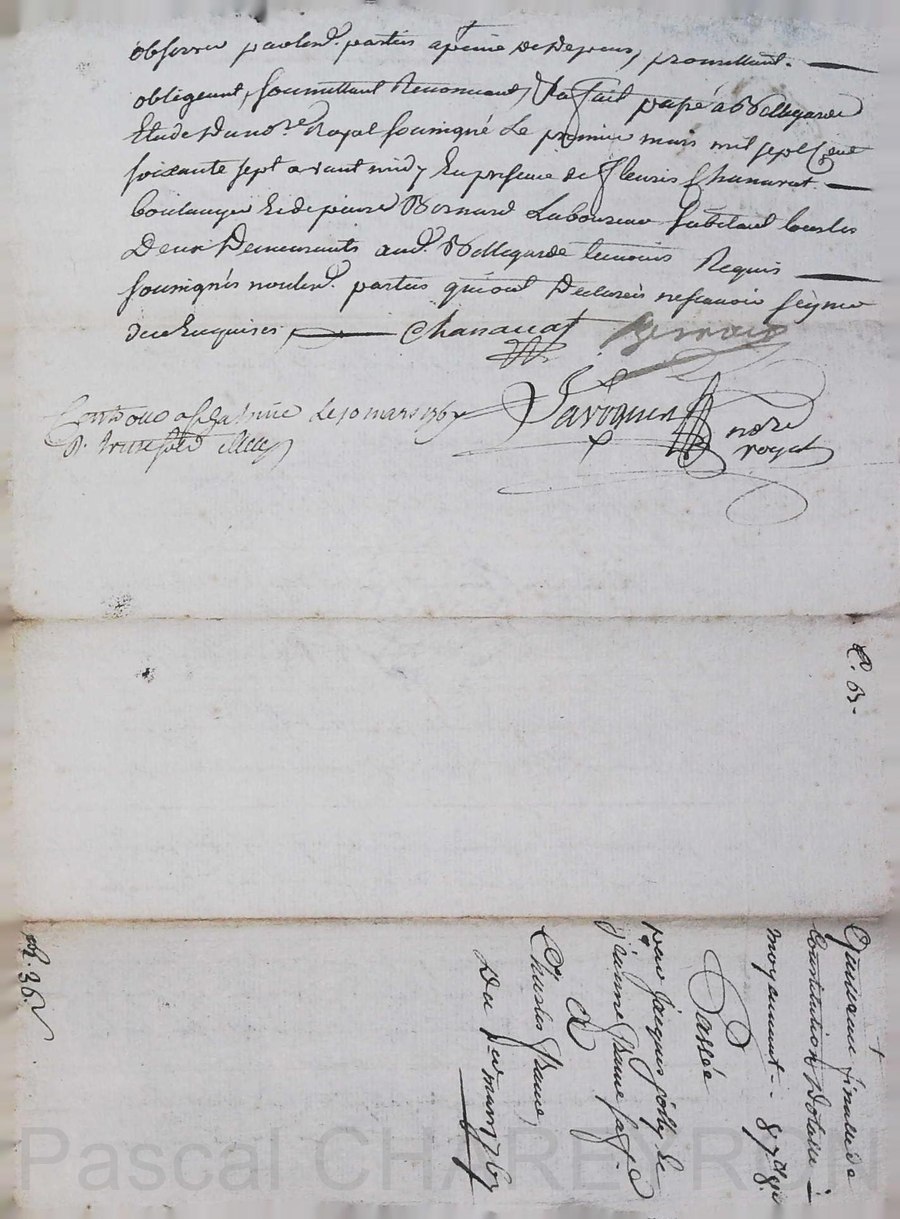 observer par lesd. parties a peine de depens, promettant.
obligeant, soumettant Renonceant, fait passé à Bellegarde
Etude du no.re Royal soussigné Le premier mars mil sept Cent
soixante sept avant midy En presence de fleuris Chanavat
boulanger Et de pierre Bernard Laboureur habitant touts les
Deux Demeurants aud. Bellegarde temoins Requis
soussignés non lesd. parties qui ont Declarés ne scavoir signer
de ce Enquises
Chanavat
Bernard
Controllé a le 10 mars 1767
notre
royal
C. B.
Quittance finalle de
Constitution dotalle
moyennant 87
Passée
par Jacques
jeanne faure
A
Charles faure
Du 1er mars 1767
36
Pascal CHAREYRON